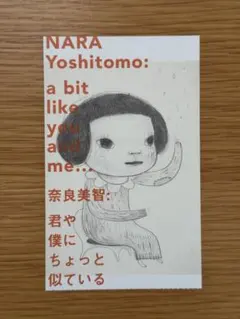 NARA
Yoshitomo:
a bit
like
you
and
me...
奈良美智:
君や
僕に
ちょっと
似ている